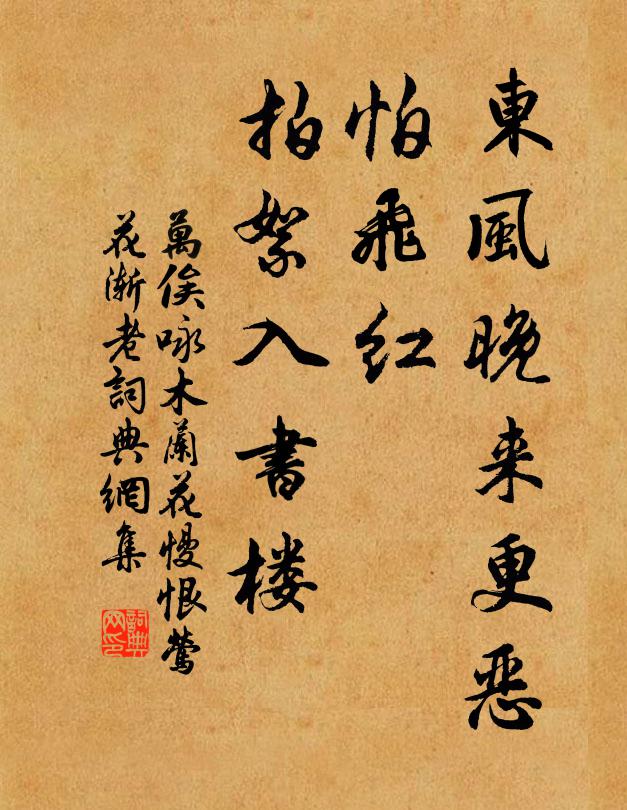 東風晚来更恶
怕飛红
拍絮入書楼
萬俟咏木蘭花慢恨鶯
花漸老詞典網集
詞典
网印